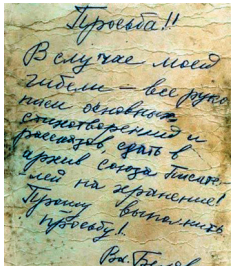 Просьба!!
В случае моей
гибели – все руко
писи основных
стихотворений и
рассказов, сдать в
архив союза писате-
лей на хранение!
Прошу выполнить
просьбу!
Вл.